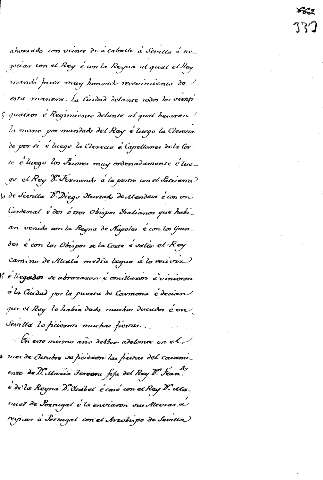 337
ahorrado con vicnes de á caballo á Sevilla á ne-
gociar con el Rey é con la Reyna al qual el Rey
mandó facer muy honrado recevimiento de
esta manera. La Ciudad delante todos los veinti
quatros é Regimiento delante al qual besaron
la mano por mandado del Rey é luego la Clerecia
de por si é luego la Clerecia é Capellanes de la Cor-
te é luego los Grandes muy ordenadamente é lue-
go el Rey Dn. Fernando á la postre con el Patriarca
de Sevilla Dn. Diego Hurtado de Mendoza é con un
Cardenal é dos é tres Obispos Italianos que havi-
an venido con la Reyna de Napoles é con los Gran-
des é con los Obispos de la Corte é salió el Rey
camino de Alcalá media legua á lo recivir
é llegados se abrazaron é omillaron é vinieron
á la Ciudad por la puerta de Carmona é decian
que el Rey le havia dado muchos ducados é en
Sevilla le ficieron muchas fiestas.
En este mismo año deltbre adelante en el
mes de Octubre se ficieron las fiestas del casami-
ento de Dª. Maria tercera fija del Rey Dn. Fernando
é de la Reyna Dª. Isabel é casó con el Rey Dn. Ma-
nuel de Portugal é la enviaron sus Altezas á
Portugal con el Arzobispo de Sevilla